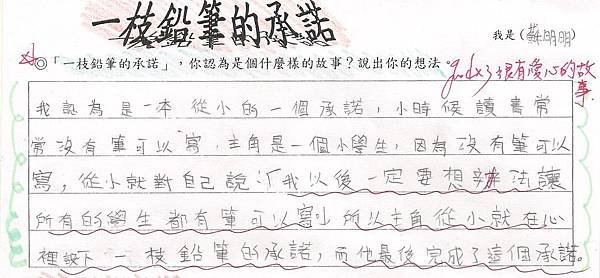 一枝鉛筆的承諾
我是(蘇明明)
◎「一枝鉛筆的承諾」，你認為是個什麼樣的故事？說出你的想法。
很有愛心的故事.
我認為是一本從小的一個承諾，小時候讀書常
常沒有筆可以寫，主角是一個小學生，因為沒有筆可以
寫，從小就對自己說：「我以後一定要想辦法讓
所有的學生都有筆可以寫」所以主角從小就在心
裡設下一枝鉛筆的承諾，而他最後完成了這個承諾。